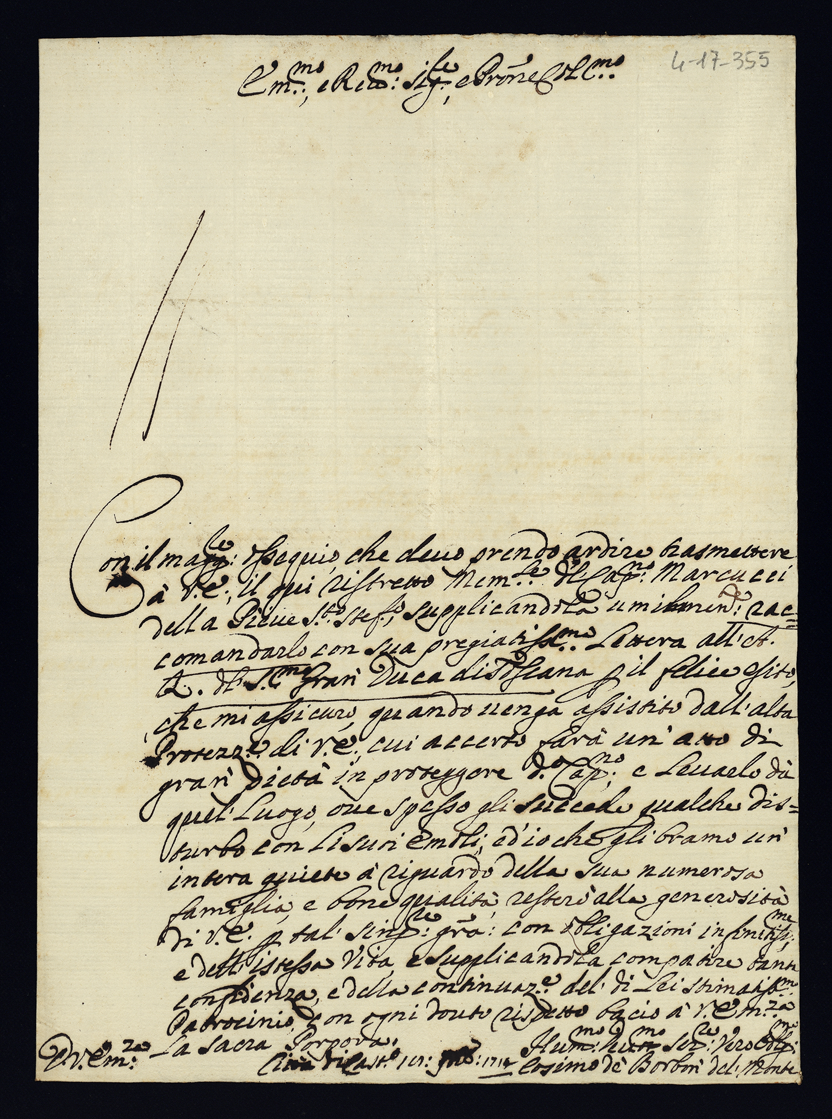 4-17-355
Em.mo, e Rev.mo: Sig.re, e Prõne Col.mo
Con il magg.re: ossequio, che devo prendo ardire trasmettere
à V.E., il qui ristretto Mem.le del Cap.no: Marcucci
della Pieve S.to Stef.o, supplicandola umilmen.te: rac=
comandarlo con sua pregiatiss.ma: Lettera all'A.
R. del S.mo Gran Duca di Toscana p il felice esito,
che mi assicuro, quando venga assistito dall'alta
Protezz.e di V.E., cui accerto farà un'atto di
gran' pietà in proteggere d.o Cap.no, e Levarlo da
quel' Luogo, ove spesso gli succede qualche dis=
turbo con Li suoi Emoli, ed'io che gli bramo un'
intera quiete à riguardo della sua numerosa
famiglia, e bone qualità, resterò alla generosità
di V.E. p tal' sing.re: grã: con obligazioni infinitiss.me,
e dell'istessa Vita, e supplicandola compatire tanta
confidenza, e della continuaz.e del' di Lei stimatiss.mo
Patrocinio, con ogni dovuto rispetto bacio à V. Em.za
La Sacra Porpora.
D. V. Em.za:
Città di Cast.o 1714
Hum.mo Dev.mo Ser.re Vero Oblig.mo
Cosimo de Borbon del' Monte